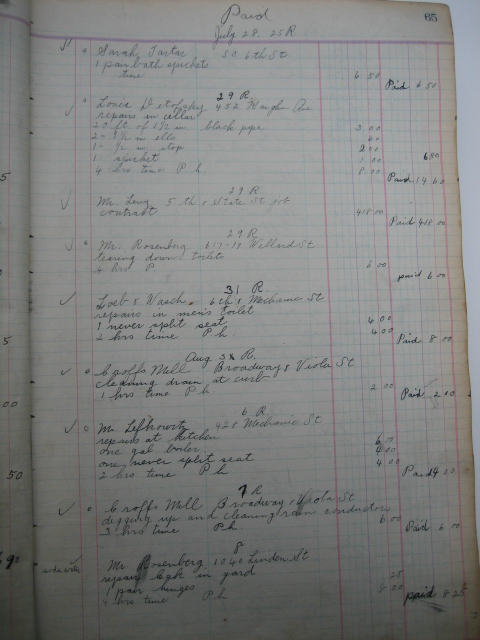 Paid 65
July 28. 25 R
Sarah Tartar 50. 6th St
1 pair bath spickets
time 6 50 Paid 6 50
29 R
Louis 452 Vaughn Ave
repairs in cellar
20 ft of 1 1/2 in black pipe 3 00
2 - 1 1/2 in ells
1 - 1/2 in stop
1 spicket 1 00 6 80
4 hrs time P h 8 00 Paid 14 60
29 R
Mr. Levy 5 th & State St job
contract 418 00 Paid 418 00
29 R
Mr. Rosenberg 617-19 Willard St
tearing down toilet
4 hrs P 6 00 paid 6 00
31 R
Loeb & Wasch. 6th & Mechanic St
repairs in men's toilet
1 never split seat 4 00
2 hrs time P h 4 00 Paid 8 00
Aug 3 R.
Croffs Mill Broadway & Viola St
cleaning drain at curb
1 hrs time P h 2 00 Paid 2 00
6 R
Mr Lefkowitz 428 Mechanic St
repairs at kitchen
one gal boiler
one never split seat
2 hrs time P h 4 00 Paid
7 R
Croffs Mill Broadway & Viola St
digging up and cleaning rain conductors
3 hrs time P h 6 00 Paid 6 00
8
Mr. Rosenberg 1040 Linden St
repair leak in yard
1 pair hinges 25
4 hrs time P h 8 00 paid 8 25